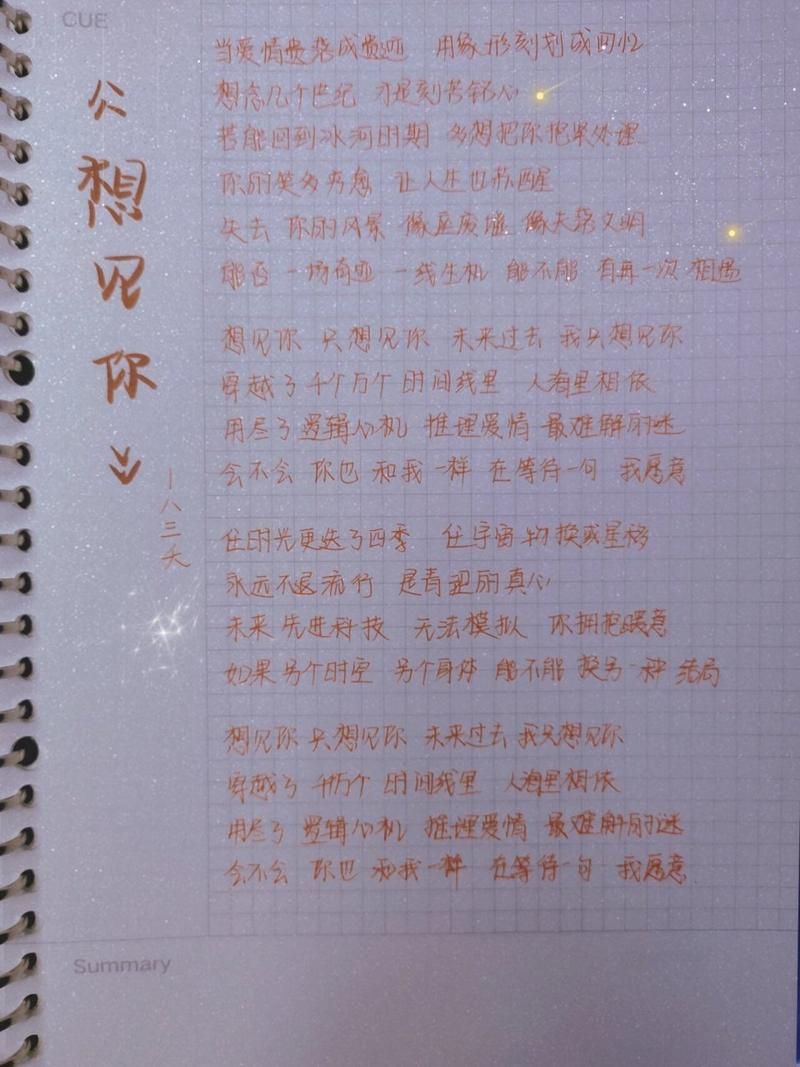 CUE
公
想
见
你
一八三夭
当爱情遗落成遗迹 用象形刻划成回忆
想念几个世纪 才是刻苦铭心
若能回到冰河时期 多想把你抱紧处理
你的笑多疗愈 让人生也苏醒
失去 你的风景 像座废墟 像失落文明
能否 一场奇迹 一线生机 能不能 有再一次 相遇
想见你 只想见你 未来过去 我只想见你
穿越了 千个万个 时间线里 人海里相依
用尽了 逻辑心机 推理爱情 最难解的谜
会不会 你也 和我一样 在等待一句 我愿意
任时光更迭了四季 任宇宙 物换或星移
永远不退流行 是青涩的真心
未来 先进科技 无法模拟 你拥抱暖意
如果另个时空 另个身体 能不能 换另一种 结局
想见你 只想见你 未来过去 我只想见你
穿越了 千万个 时间线里 人海里相依
用尽了 逻辑心机 推理爱情 最难解的谜
会不会 你也 和我一样 在等待一句 我愿意
Summary